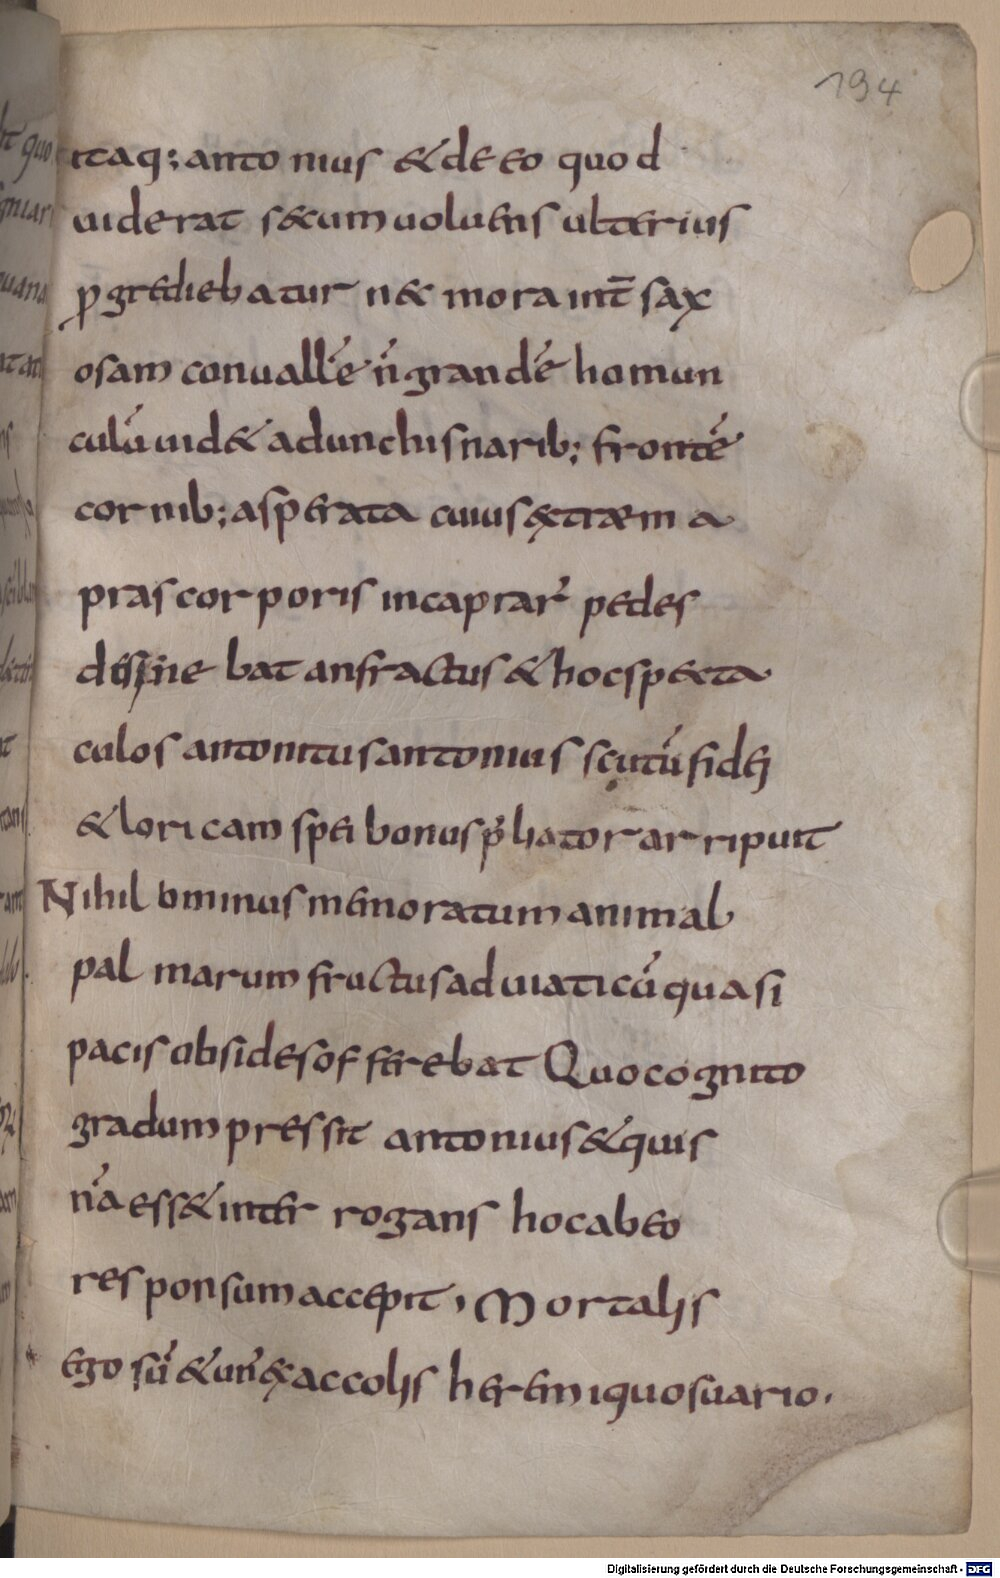 194
itaq; antonius & de eo quod
uiderat s&cum uoluens ulterius
ꝑgrediebatur n& mora int̄ sax
osam conuallē ñ grandē homun
culū uid& adunchis narib; frontē
cornib; asperata cuius extraem a
pras corporis in caprar̄ pedes
desine bat anfractus & hoc sp&cta
culos antonitus antonius scutū fidęi
& loricam spei bonus p̄liator arripuit
Nihil ominus memoratum animal
palmarum fructus ad uiaticū quasi
pacis obsides offerebat Quo cognito
gradum pressit antonius & quis
n̄a ess& inter rogans hoc ab eo
responsum accepit, Mortalis
ego sū & un̄ ex accolis heremi quos uario.
Digitalisierung gefördert durch die Deutsche Forschungsgemeinschaft - DFG